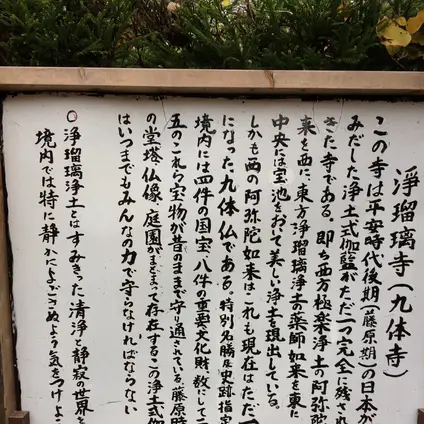 浄瑠璃寺(九体寺)
この寺は平安時代後期(藤原期)の日本が
みだした浄土式伽藍がただ一つ完全に残され
きた寺である。即ち西方極楽浄土の阿弥陀
来を西に、東方浄瑠璃浄土の薬師如来を東に
中央には宝池をおて美しい浄土を現出している。
しかも西の阿弥陀如来はこれも現在はただ一
になった九体仏である。特別名勝及史跡指定
境内には四件の国宝、八件の重要文化財、数にして二
五のこれら宝物が昔のままで守り通されている。藤原時
の堂塔、仏像、庭園がまとまって存在するこの浄土式伽
はいつまでもみんなの力で守らなければならない
○浄瑠璃浄土とはすみきった清浄と静寂の世界を
境内では特に静かによごさぬよう気をつけよ